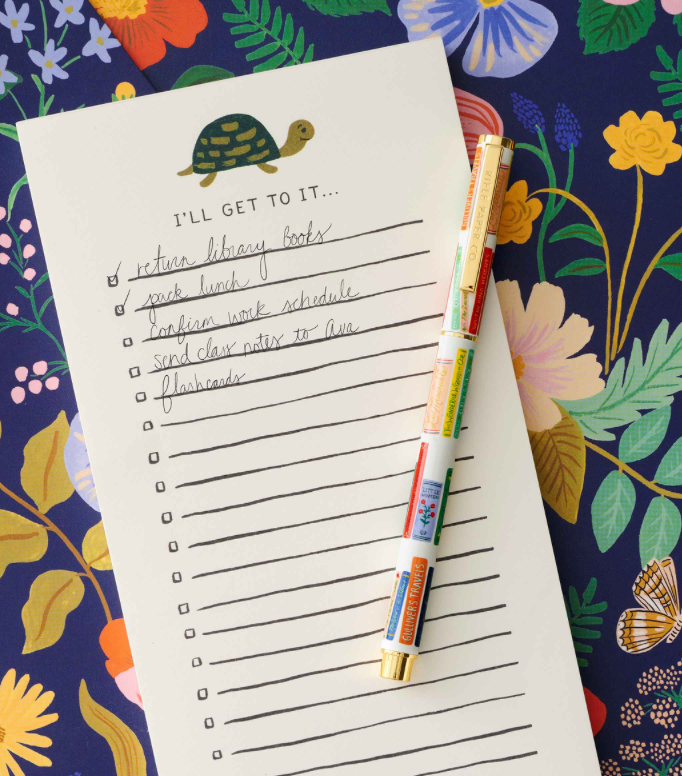 I'LL GET TO IT...
return library books
pack lunch
confirm work schedule
send class notes to Ava
flashcards
RIFLE PAPER CO.
LITTLE WOMEN
GULLIVER'S TRAVELS